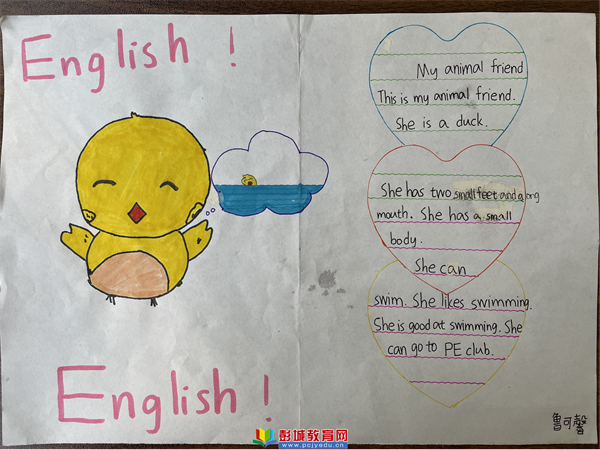 English!
My animal friend
This is my animal friend.
She is a duck.
She has two small feet and a long
mouth. She has a small
body.
She can
swim. She likes swimming.
She is good at swimming. She
can go to PE club.
English!
鲁可馨
彭城教育网
www.pcjyedu.cn